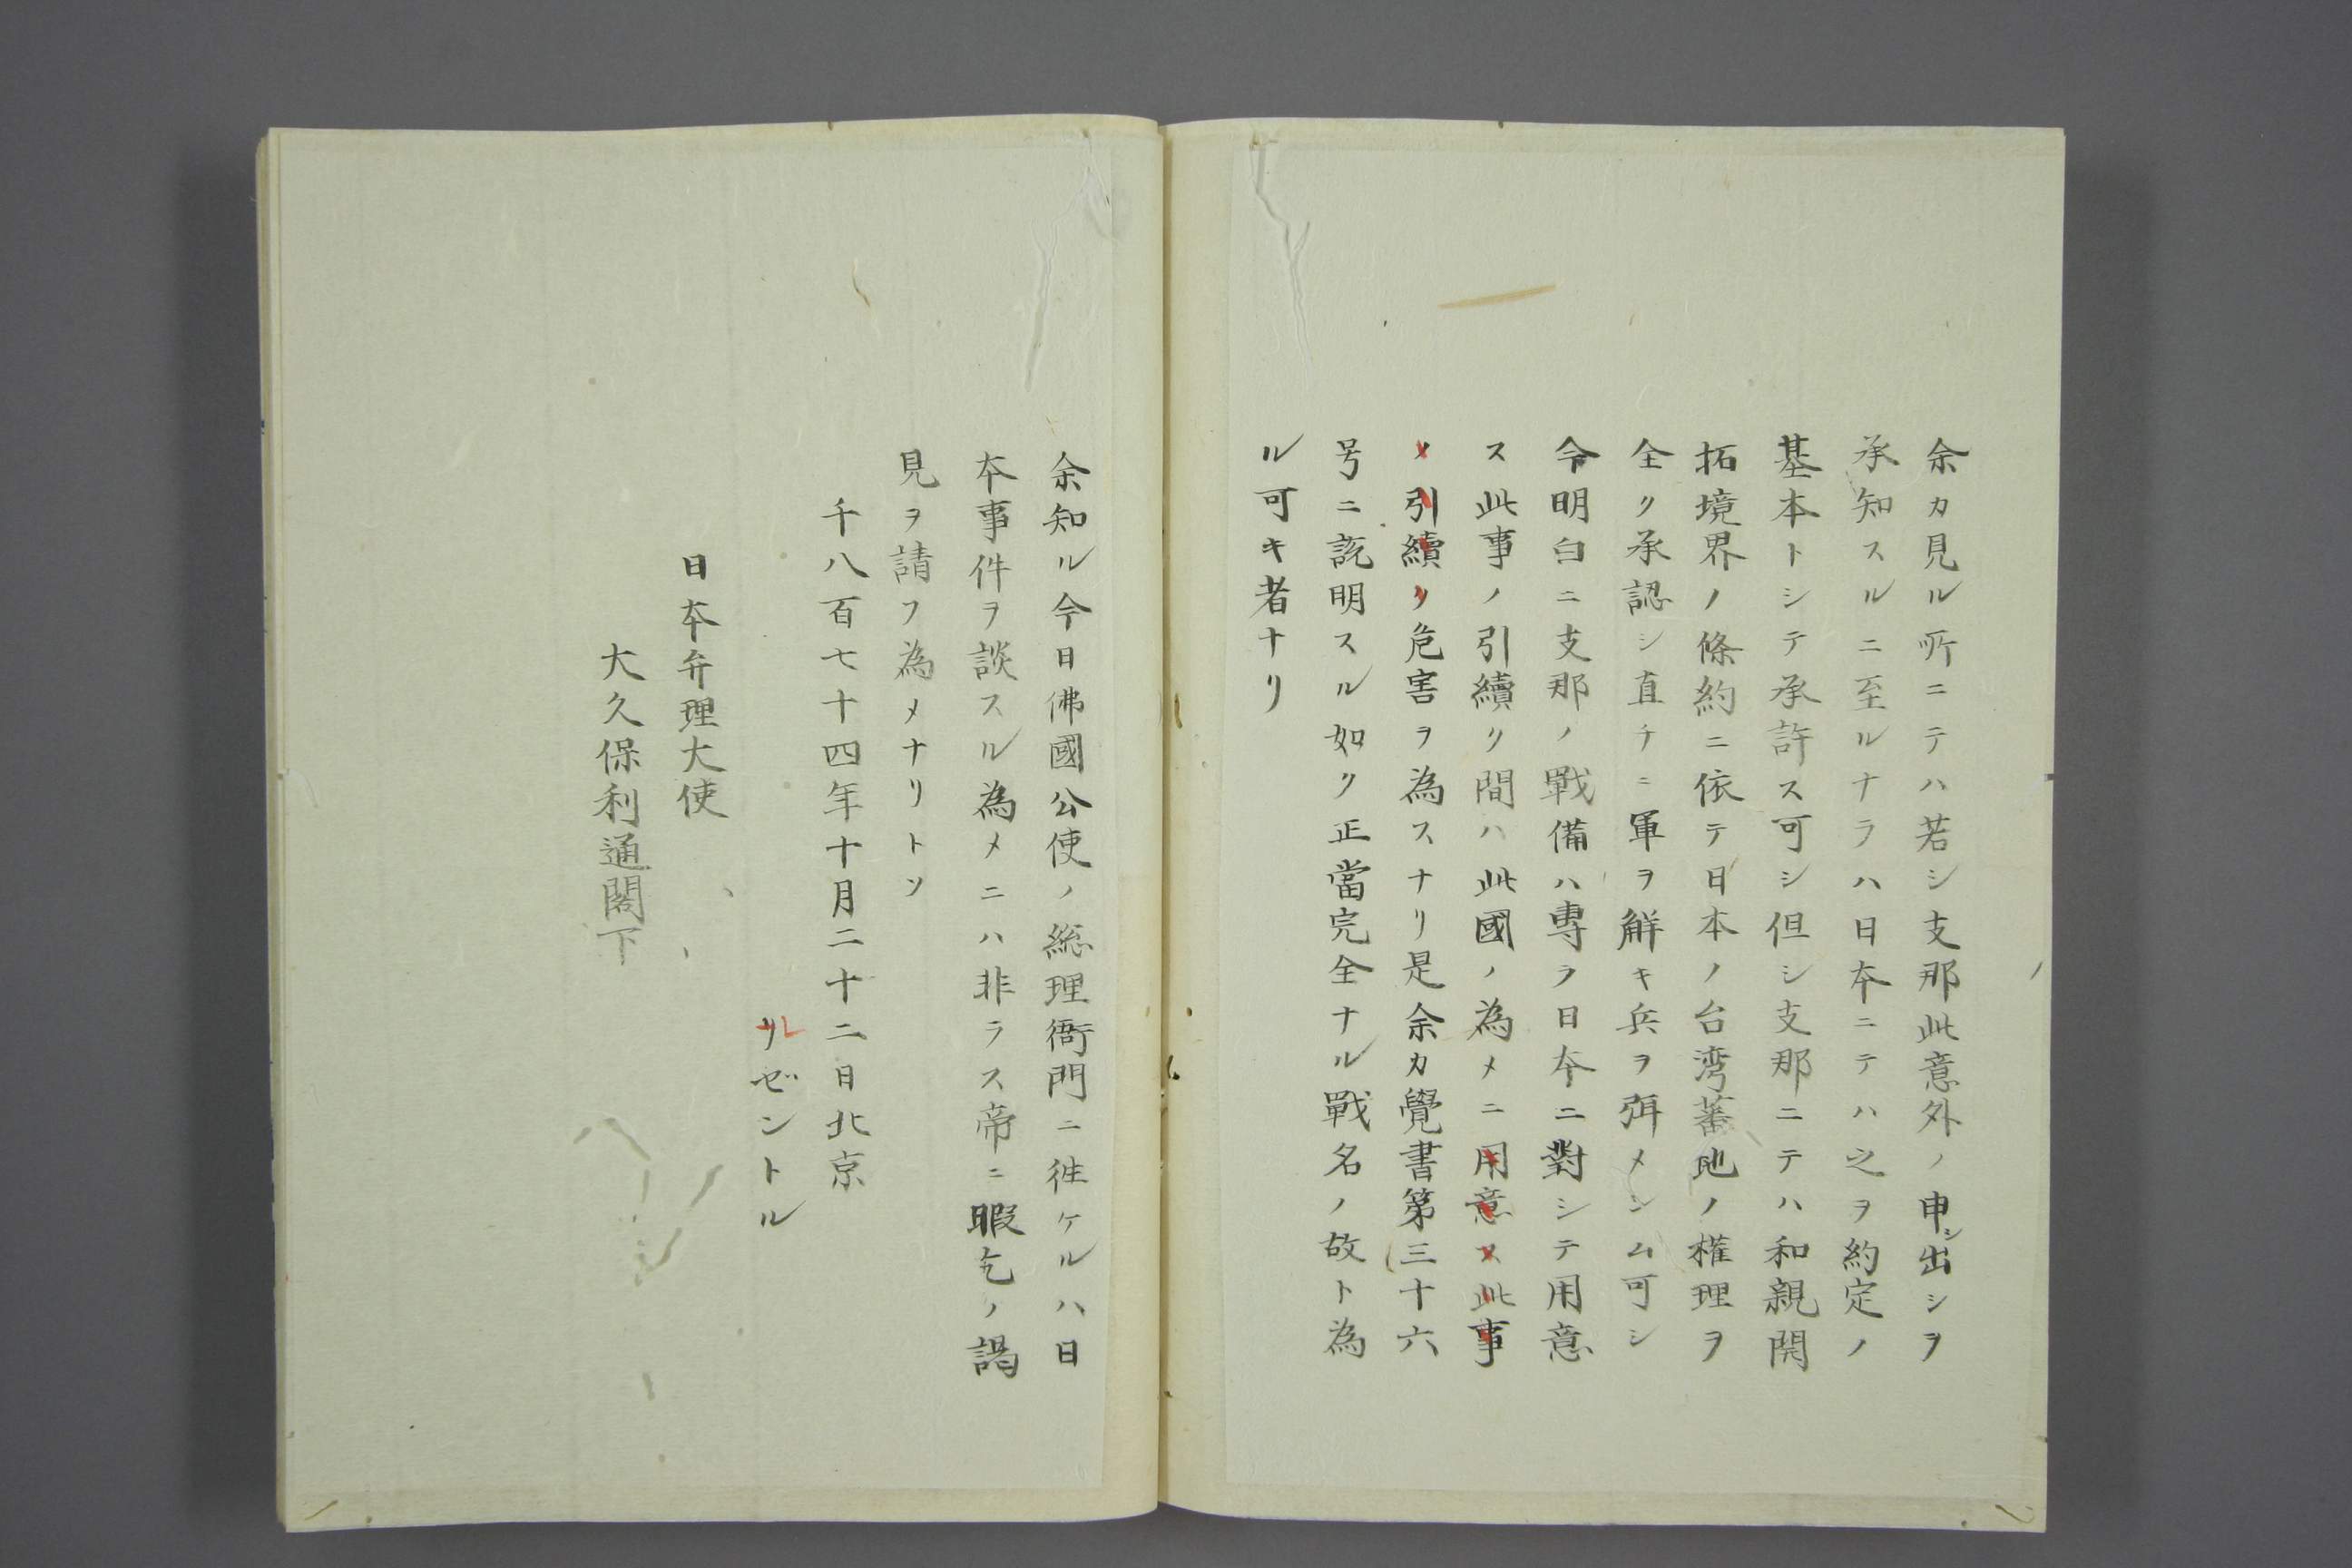 余カ見ル所ニテハ若シ支那此意外ノ申シ出シヲ
承知スルニ至ルナラハ日本ニテハ之ヲ約定ノ
基本トシテ承許ス可シ但シ支那ニテハ和親開
拓境界ノ條約ニ依テ日本ノ台湾蕃地ノ権理ヲ
全ク承認シ直チニ軍ヲ解キ兵ヲ弭メシム可シ
今明白ニ支那ノ戰備ハ專ラ日本ニ對シテ用意
ス此事ノ引續ク間ハ此國ノ為メニ用意メ此事
メ引續ク危害ヲ為スナリ是余カ覺書第三十六
号ニ説明スル如ク正當完全ナル戰名ノ故ト為
ル可キ者ナリ
余知ル今日佛國公使ノ総理衙門ニ徃ケルハ日
本事件ヲ談スル為メニハ非ラス帝ニ暇乞ノ謁
見ヲ請フ為メナリトソ
千八百七十四年十月二十二日北京
リレゼントル
日本弁理大使
大久保利通閣下